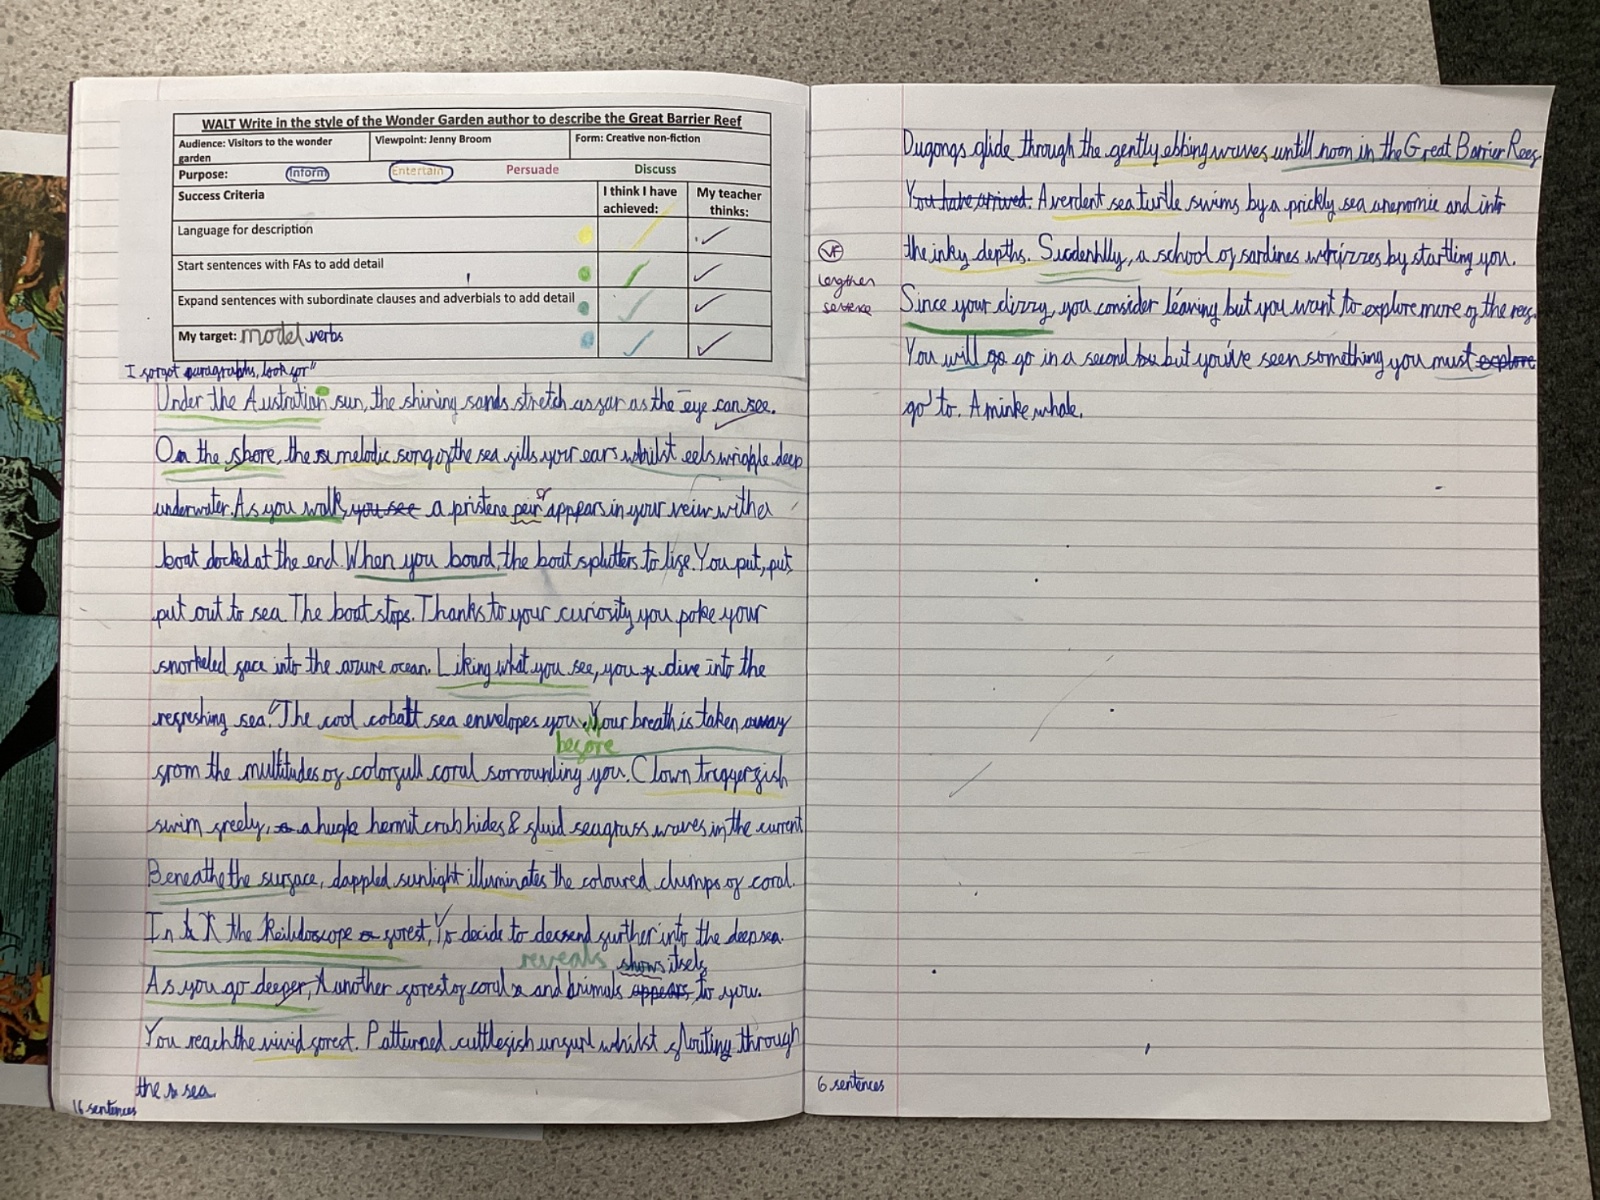 WALT Write in the style of the Wonder Garden author to describe the Great Barrier Reef
Audience: Visitors to the wonder garden
Viewpoint: Jenny Broom
Form: Creative non-fiction
Purpose: Inform Entertain Persuade Discuss
Success Criteria
I think I have achieved:
My teacher thinks:
Language for description
Start sentences with FAs to add detail
Expand sentences with subordinate clauses and adverbials to add detail
My target: model verbs
I forgot paragraphs, look for //
Under the Austration sun, the shining sands stretch as far as the eye can see.
On the shore, the melodic song of the sea fills your ears whilst eels wriggle deep
underwater. As you walk, you see a pristene peir appears in your veiw with a
boat docked at the end. When you board, the boat splutters to life. You put, put,
put out to sea. The boat stops. Thanks to your curiosity you poke your
snorkeled face into the azure ocean. Liking what you see, you dive into the
refreshing sea. // The cool cobatt sea envelopes you. Your breath is taken away
before
from the multitudes of colorfull coral sorrounding you. Clown triggerfish
swim freely, a huge hermit crab hides & fluid seagrass waves in the current
Beneathe the surface, dappled sunlight illuminates the coloured clumps of coral.
In the Keilidoscope forest, Yo decide to decsend further into the deep sea.
reveals shows itself
As you go deeper, Another forest of coral and animals appears to you.
You reach the vivid forest. Patturned cuttlefish unfurl whilst flouting through
the sea.
16 sentences
Dugongs glide through the gently ebbing waves untill noon in the Great Barrier Reef.
You have arrived. A verdent sea turtle swims by a prickly sea anenomie and into
the inky depths. Suddenlly, a school of sardines whizzes by startling you.
VF
lengthen
sentence
Since your dizzy, you consider leaving but you want to explore more of the reef.
You will go go in a second but but you've seen something you must explore
go to. A minke whale.
6 sentences